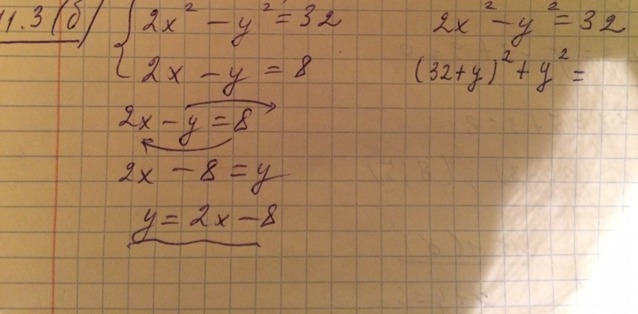 11.3 (б) { 2x² - y² = 32
2x - y = 8
2x - y = 8
2x - 8 = y
y = 2x - 8
2x² - y² = 32
(32+y)² + y² =